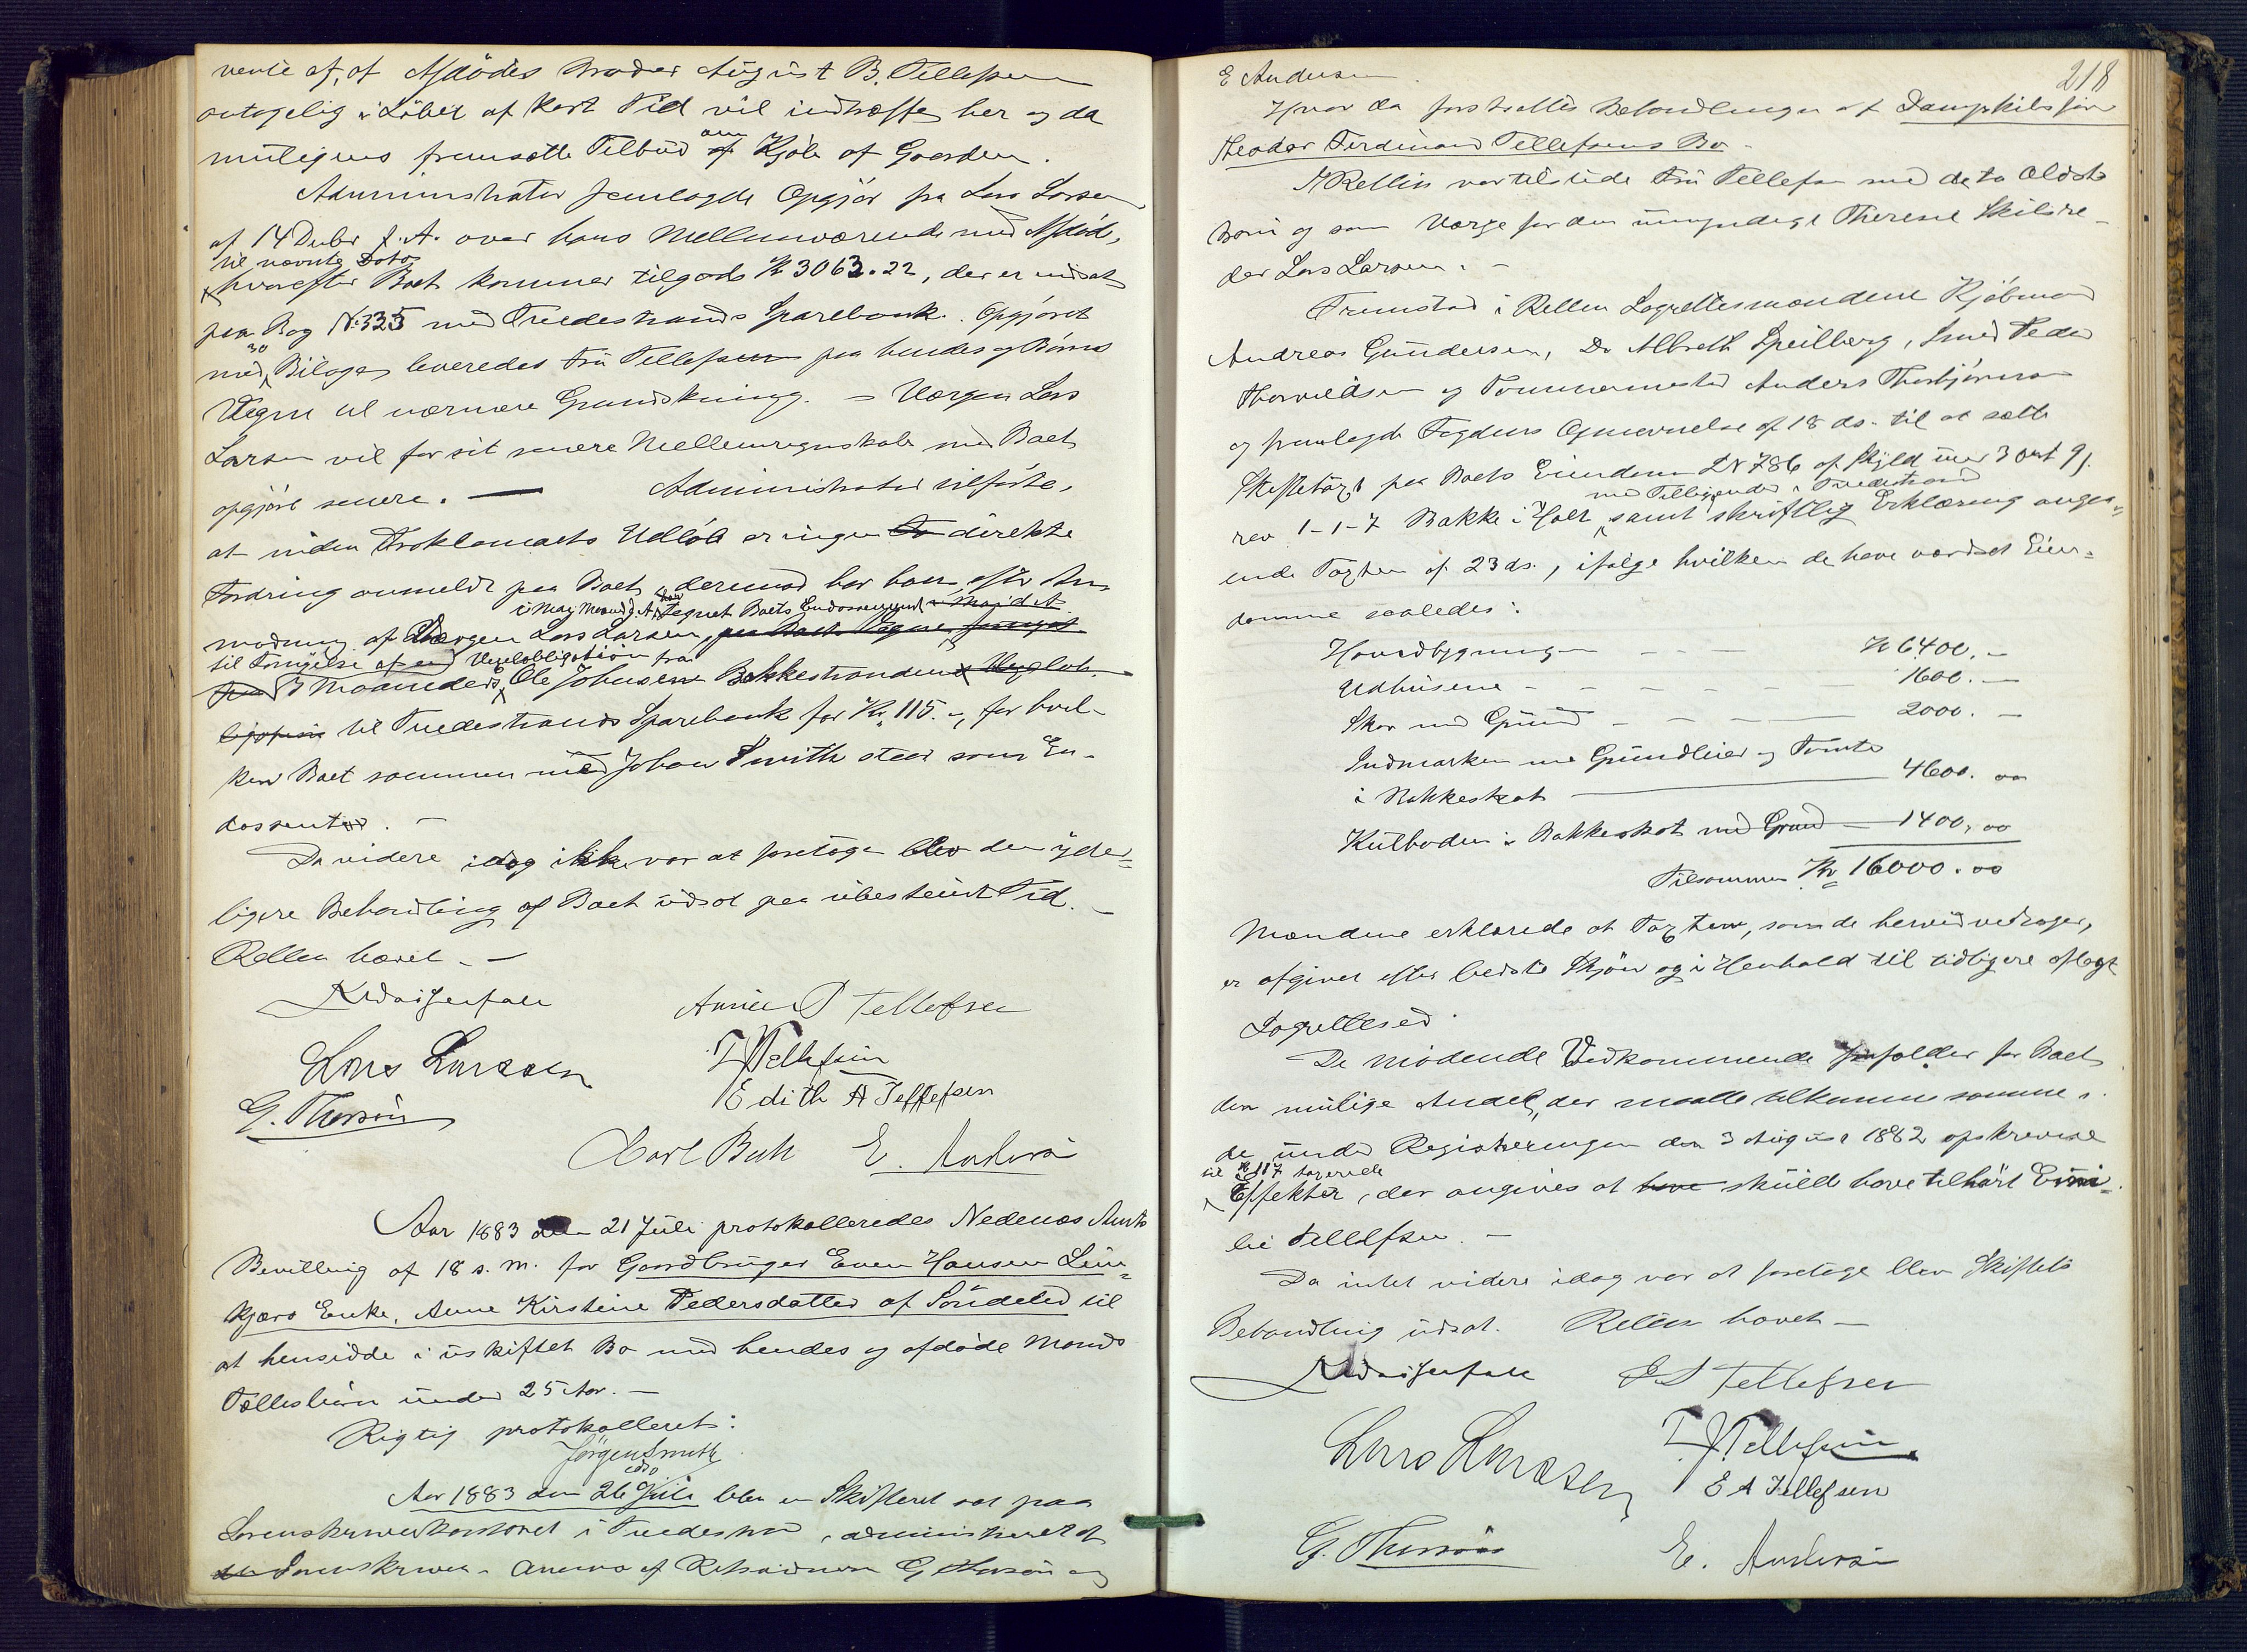 vente af, at Afdødes Broder August B. Tellefsen
antagelig i Løbet af kort Tid vil indtræffe her og da
muligens fremsætte Tilbud om Kjøb af Gaarden.
Administrator fremlagde Opgjør fra Lars Larsen
af 14 Decbr f. A. over hans Mellemværende med Afdøde,
til nævnte Dato
hvorefter Boet kommer tilgode Kr 3063.22, der er indsat
paa Bog No 335 med Tvedestrands Sparebank. Opgjøret
med 30 Bilager leveredes Fru Tellefsen paa hendes og Børns
Vegne til nærmere Grandskning. – Værgen Lars
Larsen vil for sit senere Mellemregnskab med Boet
opgjøre senere. — Administrator tilførte,
at inden Proklamaets Udløb er ingen direkte
Fordring anmeldt paa Boet, derimod har han efter An-
i Maj Maaned d. A. tegnet Boets Endossement i Maj d. A.
modning af Værgen Lars Larsen, paa Boets Vegne fornyet
til Fornyelse af en Vexelobligation fra
paa 3 Maaneder Ole Johnsen Bakkestranden Vexelob-
ligation til Tvedestrands Sparebank for Kr. 115.-, for hvil-
ken Boet sammen med Johan Smith staar som En-
dossenter. –
Da videre idag ikke var at foretage blev den yder-
ligere Behandling af Boet udsat paa ubestemt Tid. –
Retten hævet. –
Annie S Tellefsen
Lars Larsen
T Tellefsen
Edith A Tellefsen
G. Thorsøn
Carl Buch E. Andersen
Aar 1883 den 21 Juli protokolleredes Nedenæs Amts
Bevilling af 18 s. m. for Gaardbruger Even Hansen Lün-
kjærs Enke, Anne Kirstine Pedersdatter af Søndeled til
at hensidde i uskiftet Bo med hendes og afdøde Mands
Fællesbørn under 25 Aar. –
Rigtig protokolleret:
Jørgen Smith
Aar 1883 den 26 Juli blev en Skifteret sat paa
Sorenskriverkontoret i Tvedestrand, administreret af
Sorenskriveren i Nærvær af Retsvidnerne G Thorsøn og
218
E Andersen.
Hvor da fortsattes Behandlingen af Dampskibsfører
Theodor Ferdinand Tellefsens Bo. –
I Retten var tilstede Fru Tellefsen med de to ældste
Børn og som Værge for den umyndige Therese Skibsre-
der Lars Larsen. –
Fremstod i Retten Lagrettesmændene Kjøbmand
Andreas Gundersen, Do Albreth Speilberg, Smed Peder
Thorvildsen og Tømmermester Anders Thorbjørnsen
og fremlagde Fogdens Opnævnelse af 18 ds. til at sætte
Skiftetaxt paa Boets Eiendom LN 786 af Skyld uer 3 ort 9 s.
med Tilliggender i Tvedestrand
rev 1-1-7 Bakke i Holt, samt skriftlig Erklæring angaa-
ende Taxten af 23 ds., ifølge hvilken de have værdsat Eien-
domme saaledes:
Hovedbygningen – – – Kr 6400. –
Udhusene – – – – 1600. –
Skov med Grund – – – 2000. –
Indmarken med Grundleier og Tomter
i Bakkeskot — 4600. 00
Kulboden i Bakkeskot med Grund – 1400. 00
Tilsammen Kr 16000. 00
Mændene erklærede at Taxten, som de herved vedtager,
er afgivet efter bedste Skjøn og i Henhold til tidligere aflagt
Lagretteséd.
De mødende Vedkommende frafalder for Boet
den mulige Andel, der maatte tilkomme samme i
de under Registreringen den 3 August 1882 opskrevne
til Kr 117 taxerede
Effekter, der angives at have skulle have tilhørt Emi-
lie Tellefsen. –
Da intet videre idag var at foretage blev Skiftets
Behandling udsat. Retten hævet –
A S Tellefsen
Lars Larsen
T Tellefsen
E A Tellefsen
G. Thorsøn
E. Andersen